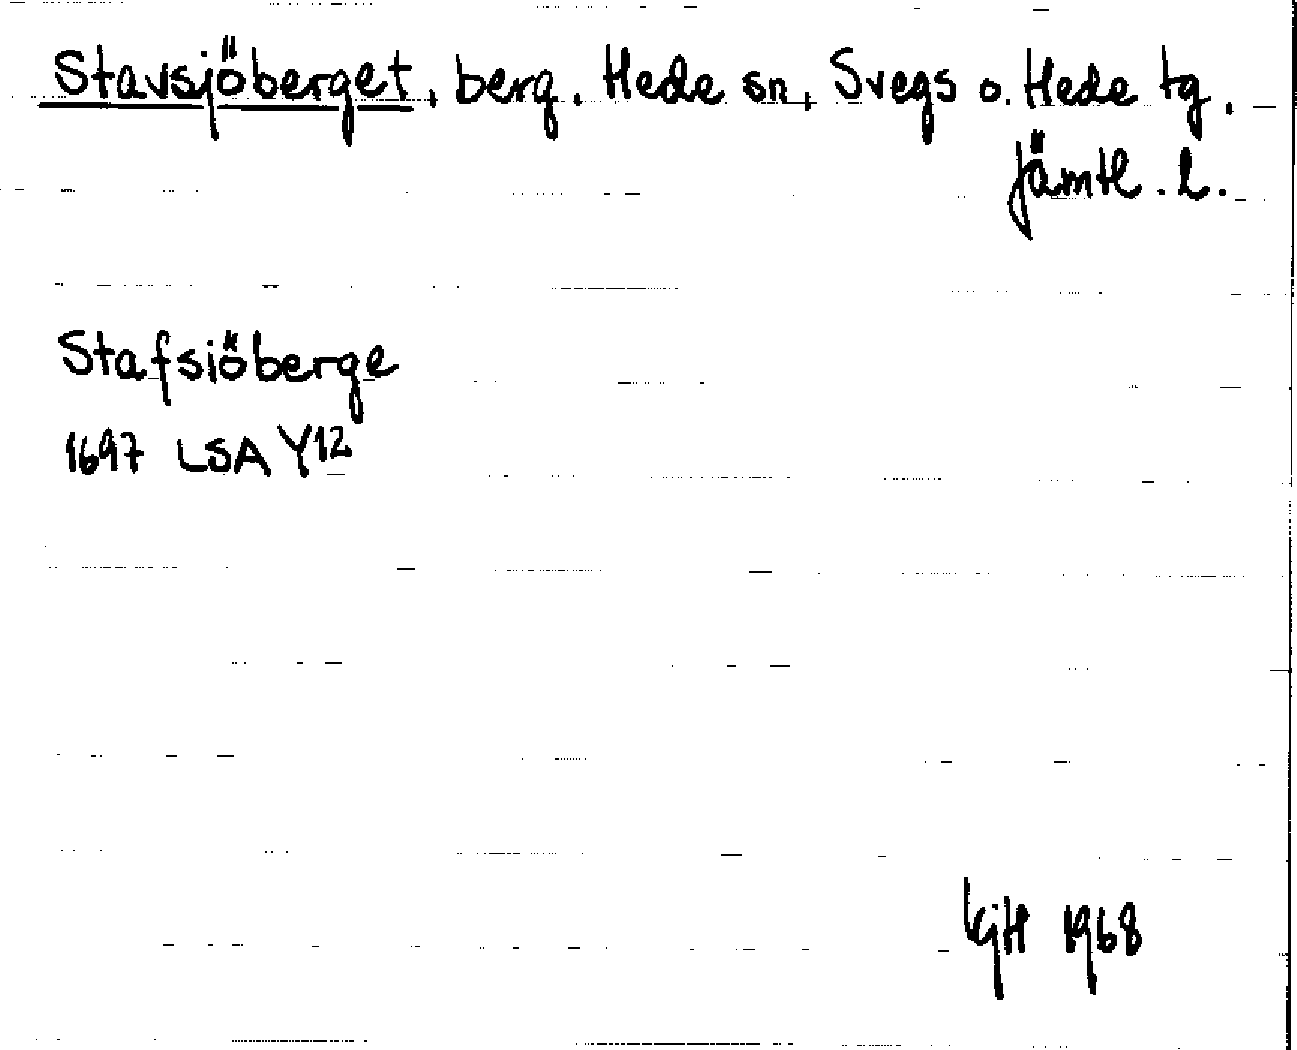 Stavsjöberget, berg. Hede sn, Svegs o. Hede tg.
Jämtl. l.
Stafsiöberge
1697 LSA Y12
1968